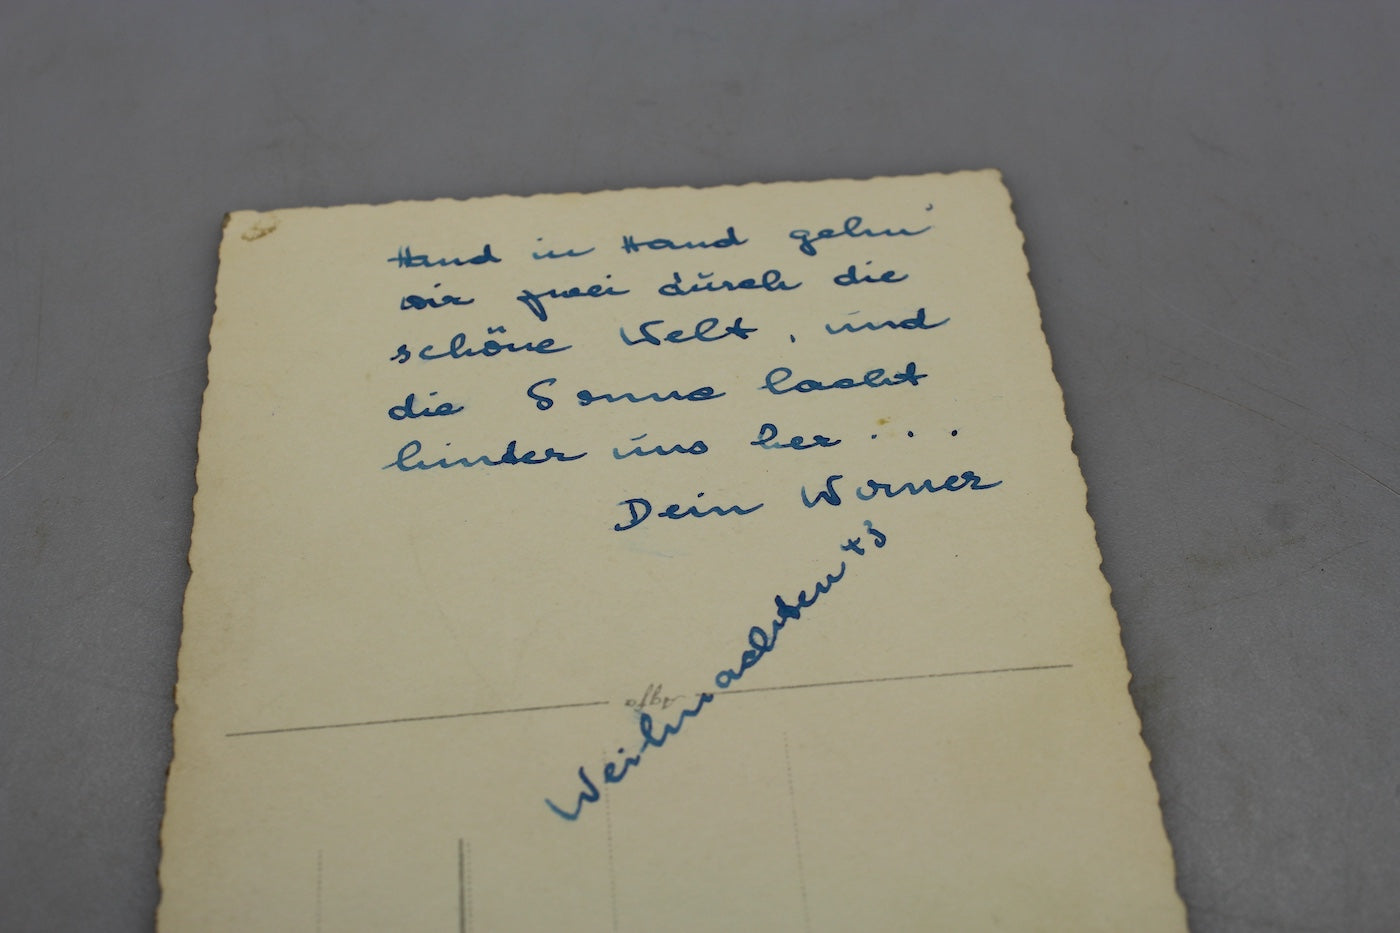 Hand in Hand gehn'
wir zwei durch die
schöne Welt, und
die Sonne lacht
hinter uns her . . .
Dein Werner
Weihnachten 43
Agfa